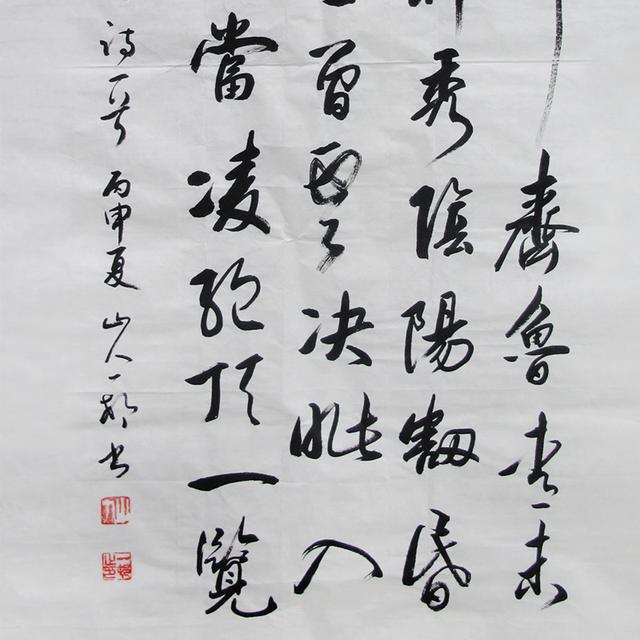 齊魯青未
秀陰陽割昏
曾雲决眥入
當凌絕頂一覽
詩一首 丙申夏 山人一书